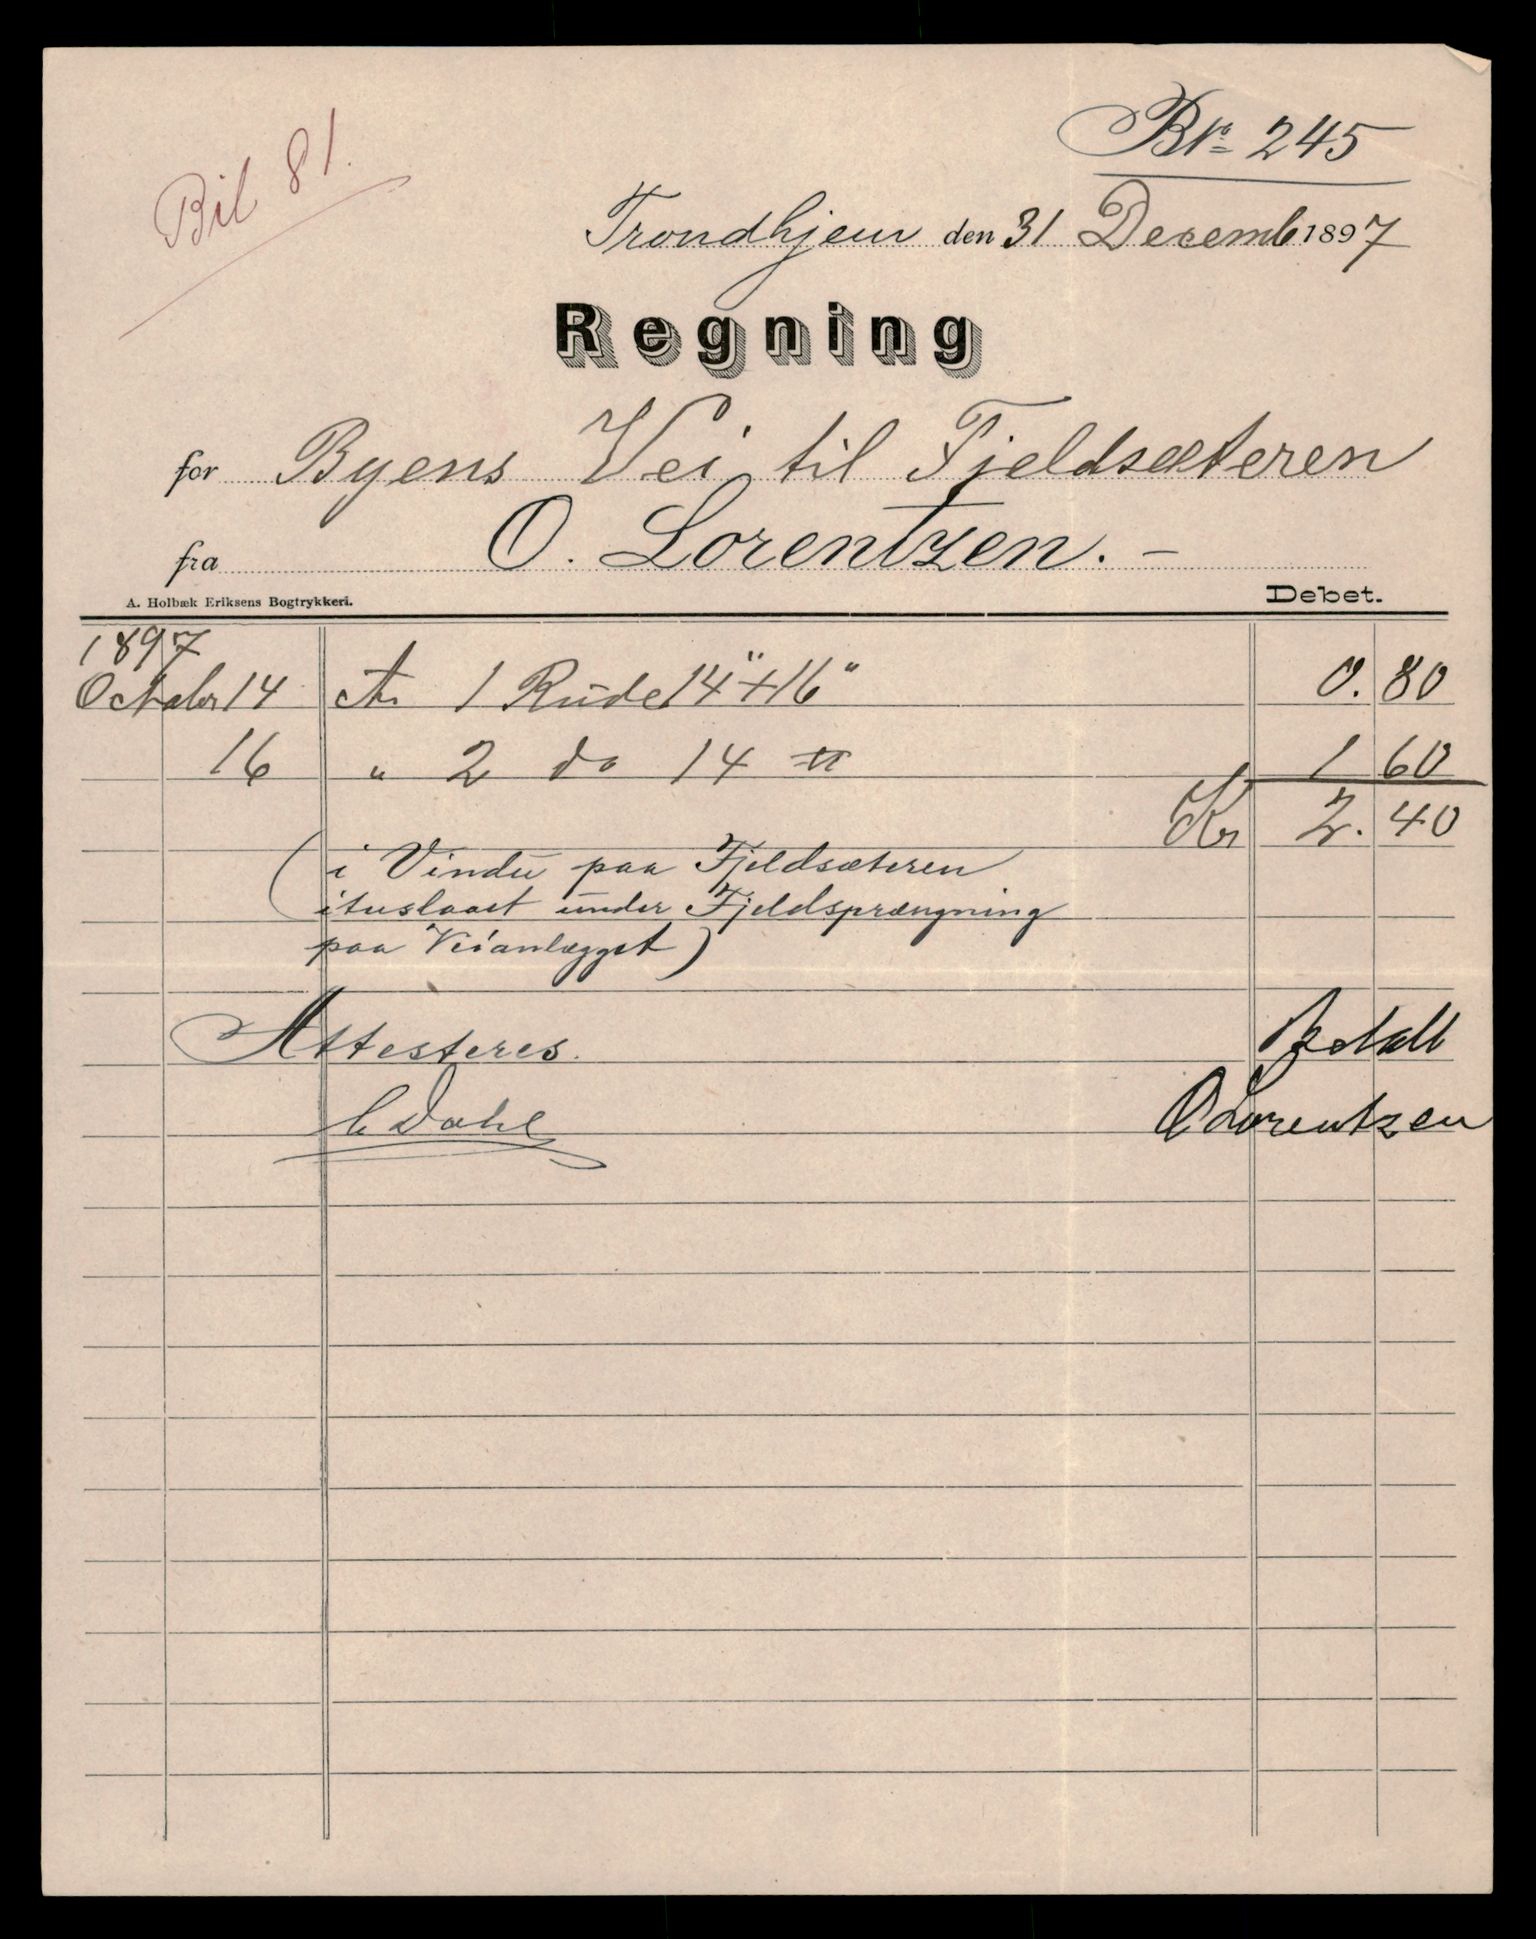 Bil 81.
Bl. 245
Trondhjem den 31 Decemb 1897
Regning
for Byens Vei til Fjeldsæteren
fra O. Lorentzen. –
A. Holbæk Eriksens Bogtrykkeri. Debet.
1897
October 14 At 1 Rude 14" + 16" 0. 80
16 " 2 do 14 1 60
Kr 2. 40
(i Vindu paa Fjeldsæteren
ituslaaet under Fjeldsprængning
paa Veianlægget)
Attesteres. Betalt
C Dahl O Lorentzen